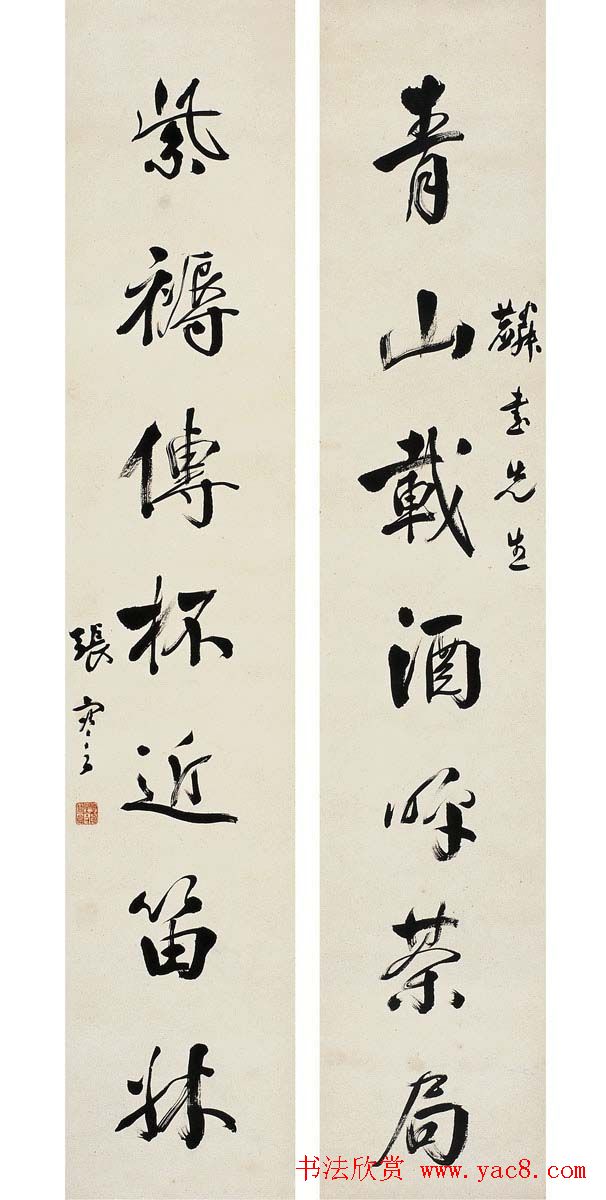 青山載酒呼茶局
書先生
紫褥傳杯近笛牀
張
书法欣赏 www.yac8.com